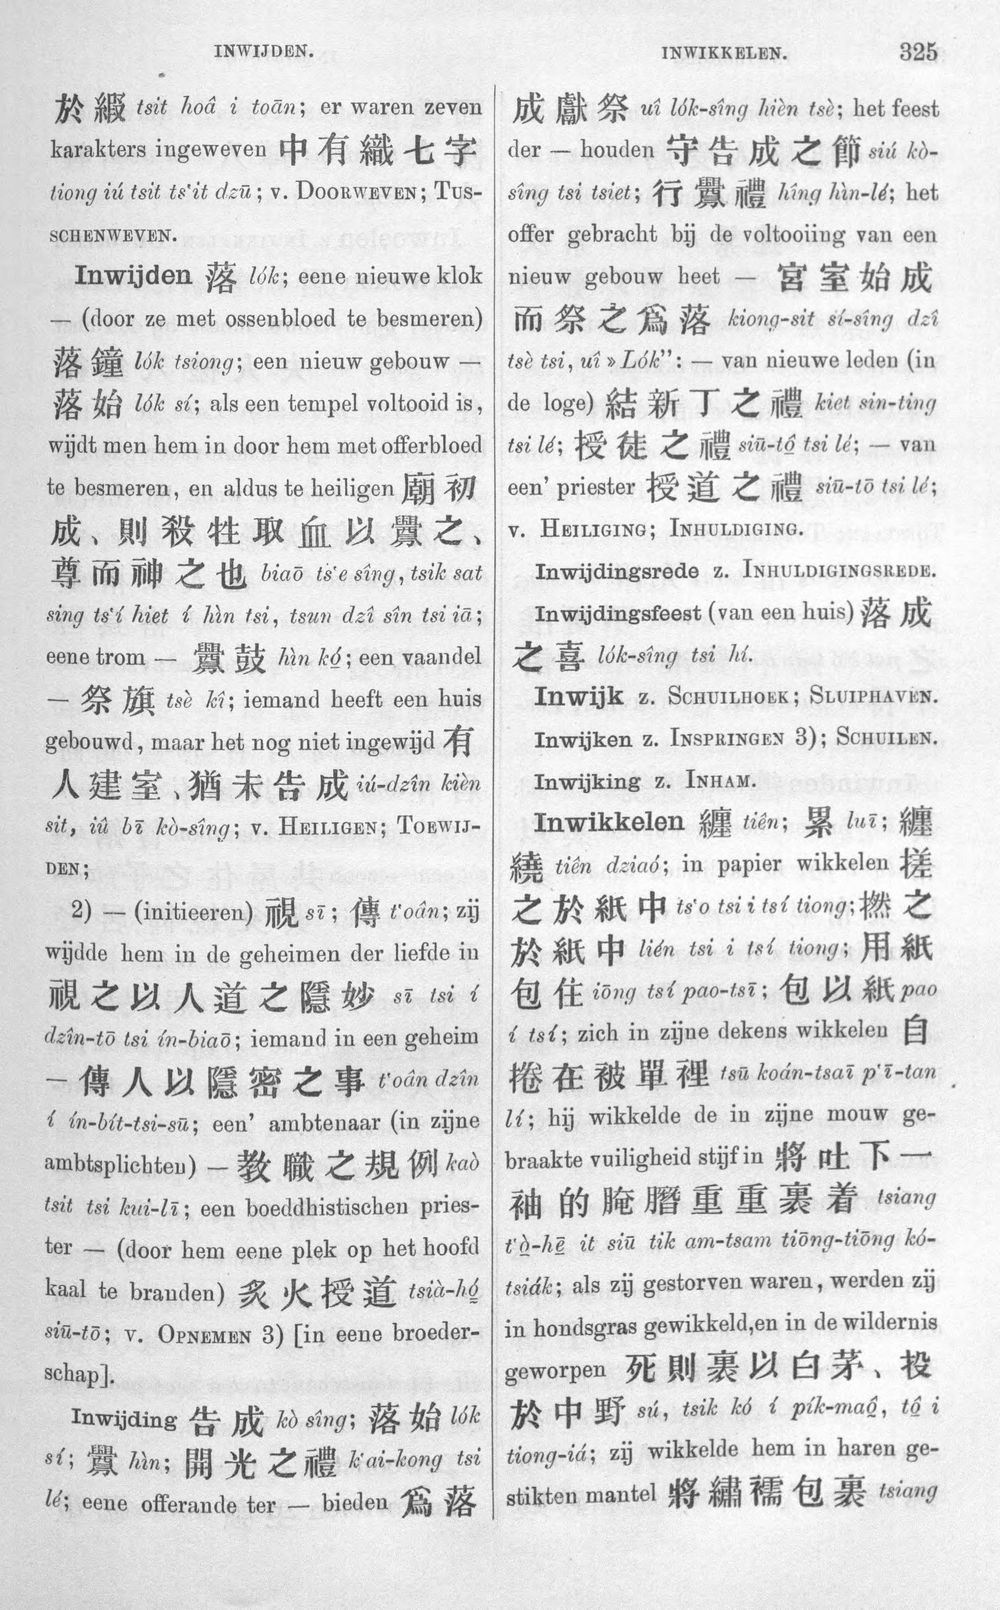 INWIJDEN.
INWIKKELEN. 325
於緞 tsit hoâ i toān; er waren zeven
karakters ingeweven 中有織七字
tiong iú tsit ts‘it dzū; v. DOORWEVEN; TUS-
SCHENWEVEN.
Inwijden 落 lók; eene nieuwe klok
— (door ze met ossenbloed te besmeren)
落鐘 lók tsiong; een nieuw gebouw —
落始 lók sí; als een tempel voltooid is,
wijdt men hem in door hem met offerbloed
te besmeren, en aldus te heiligen 廟初
成、則殺牲取血以釁之、
尊而神之也 biaō ts‘e sîng, tsik sat
sing ts‘í hiet í hìn tsi, tsun dzî sîn tsi iā;
eene trom — 釁鼓 hìn kó; een vaandel
— 祭旗 tsè kî; iemand heeft een huis
gebouwd, maar het nog niet ingewijd 有
人建室、猶未告成 iú-dzîn kièn
sit, iû bī kò-sîng; v. HEILIGEN; TOEWIJ-
DEN;
2) — (initieeren)視 sī;傳 t‘oân; zij
wijdde hem in de geheimen der liefde in
視之以人道之隱妙 sī tsi í
dzîn-tō tsi ín-biaō; iemand in een geheim
— 傳人以隱密之事 t‘oân dzîn
í ín-bít-tsi-sū; een’ ambtenaar (in zijne
ambtsplichten) — 教職之規例 kaò
tsit tsi kui-lī; een boeddhistischen pries-
ter — (door hem eene plek op het hoofd
kaal te branden) 炙火授道 tsià-hó
siū-tō; v. OPNEMEN 3) [in eene broeder-
schap].
Inwijding 告成 kò sîng; 落始 lók
sí; 釁 hìn; 開光之禮 k‘ai-kong tsi
lé; eene offerande ter — bieden 爲落
成獻祭 uî lók-sîng hièn tsè; het feest
der — houden 守告成之節 siú kò-
sîng tsi tsiet; 行釁禮 hîng hìn-lé; het
offer gebracht bij de voltooiing van een
nieuw gebouw heet — 宮室始成
而祭之爲落 kiong-sit sí-sîng dzî
tsè tsi, uî »Lók": — van nieuwe leden (in
de loge) 結新丁之禮 kiet sin-ting
tsi lé; 授徒之禮 siū-tô tsi lé; — van
een’ priester 授道之禮 siū-tō tsi lé;
v. HEILIGING; INHULDIGING.
Inwijdingsrede z. INHULDIGINGSREDE.
Inwijdingsfeest (van een huis) 落成
之喜 lók-sîng tsi hí.
Inwijk z. SCHUILHOEK; SLUIPHAVEN.
Inwijken z. INSPRINGEN 3); SCHUILEN.
Inwijking z. INHAM.
Inwikkelen 纏 tiên; 累 luī; 纏
繞 tiên dziaó; in papier wikkelen 搓
之於紙中 ts‘o tsi i tsí tiong; 撚之
於紙中 lién tsi i tsí tiong; 用紙
包住 iōng tsí pao-tsī; 包以紙 pao
í tsí; zich in zijne dekens wikkelen 自
捲在被單裡 tsū koán-tsaī p‘ī-tan
lí; hij wikkelde de in zijne mouw ge-
braakte vuiligheid stijf in 將吐下一
袖的腌臢重重裹着 tsiang
t‘ò-hē it siū tik am-tsam tiōng-tiōng kó-
tsiák; als zij gestorven waren, werden zij
in hondsgras gewikkeld,en in de wildernis
geworpen 死則裹以白茅、投
於中野 sú, tsik kó í pík-maô, tô i
tiong-iá; zij wikkelde hem in haren ge-
stikten mantel 將繡襦包裹 tsiang